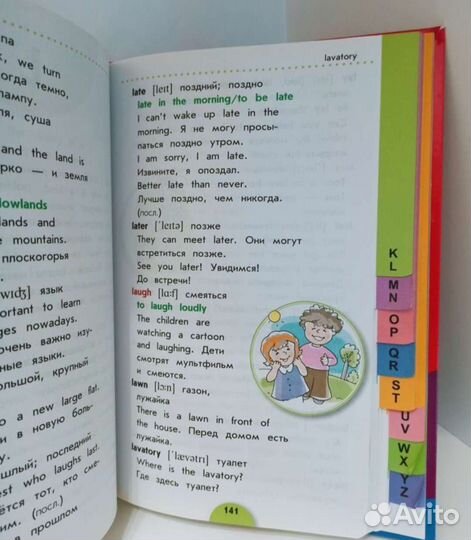 па
k, we turn
огда темно,
лампу.
ля, суша
and the land is
рко — и земля
lowlands
lands and
e mountains.
плоскогорья
wɪdʒ] язык
portant to learn
ges nowadays.
очень важно изу-
ные языки.
ольшой, крупный
to a new large flat.
и в новую боль-
шлый; последний
est who laughs last.
ётся тот, кто сме-
им. (посл.)
в прошлом
lavatory
late [leɪt] поздний; поздно
late in the morning/to be late
I can't wake up late in the
morning. Я не могу просы-
паться поздно утром.
I am sorry, I am late.
Извините, я опоздал.
Better late than never.
Лучше поздно, чем никогда.
(посл.)
later ['leɪtə] позже
They can meet later. Они могут
встретиться позже.
See you later! Увидимся!
До встречи!
laugh [lɑ:f] смеяться
to laugh loudly
The children are
watching a cartoon
and laughing. Дети
смотрят мультфильм
и смеются.
lawn [lɔ:n] газон,
лужайка
There is a lawn in front of
the house. Перед домом есть
лужайка.
lavatory ['lævətrɪ] туалет
Where is the lavatory?
Где здесь туалет?
141
K
L
M
N
O
P
Q
R
S
T
U
V
W
X
Y
Z
Avito